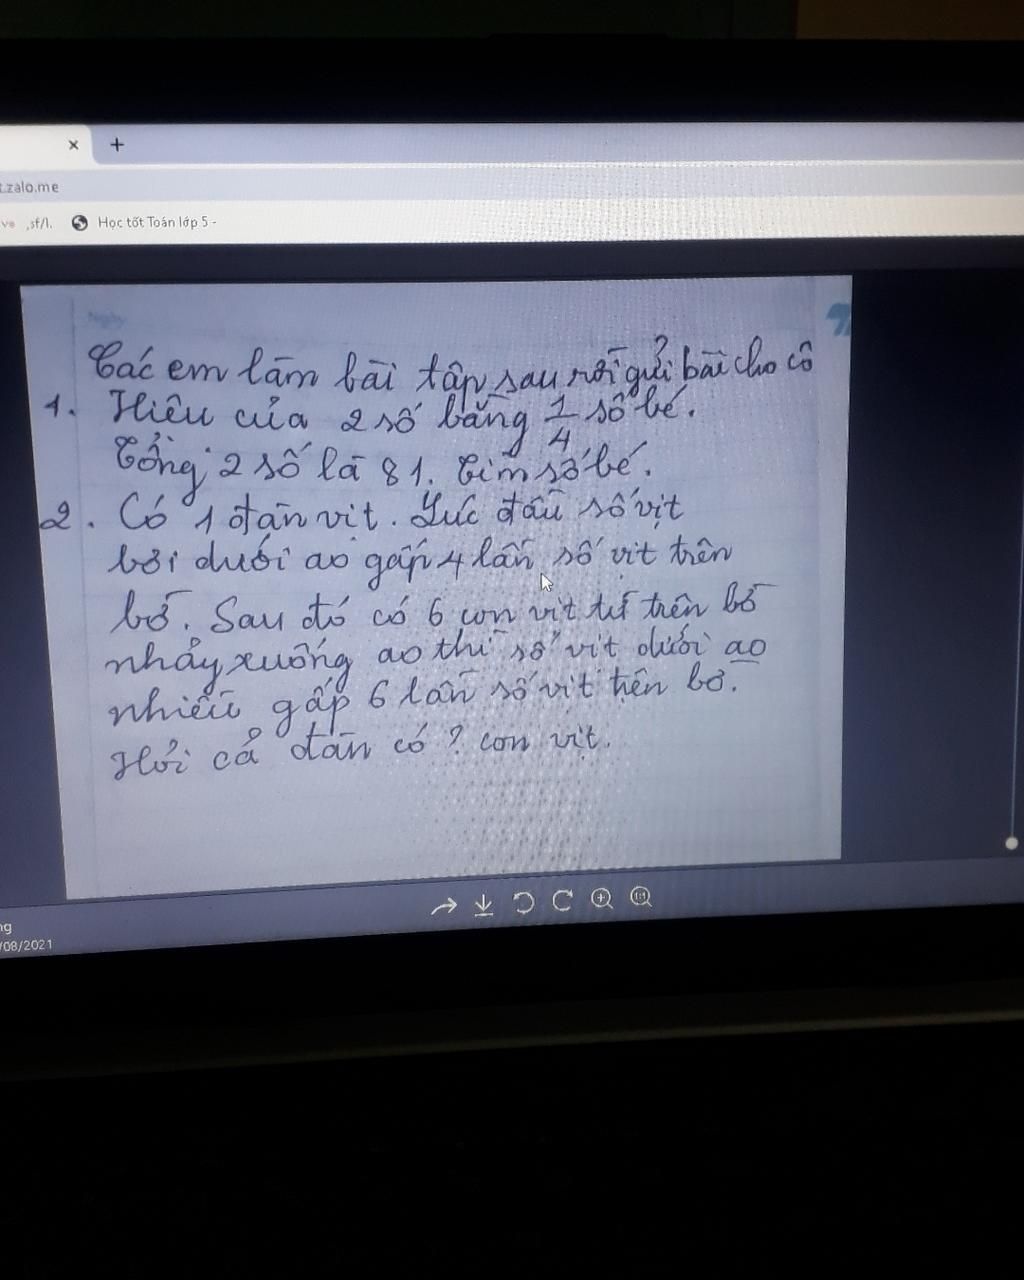 × +
t.zalo.me
ve ,sf/l. Học tốt Toán lớp 5 -
Ngày
Các em làm bài tập sau rồi gửi bài cho cô
1. Hiệu của 2 số bằng 1/4 số bé.
Tổng 2 số là 81. Tìm số bé.
2. Có 1 đàn vịt. Lúc đầu số vịt
bơi dưới ao gấp 4 lần số vịt trên
bờ. Sau đó có 6 con vịt từ trên bờ
nhảy xuống ao thì số vịt dưới ao
nhiều gấp 6 lần số vịt trên bờ.
Hỏi cả đàn có ? con vịt.
1:1
ng
/08/2021